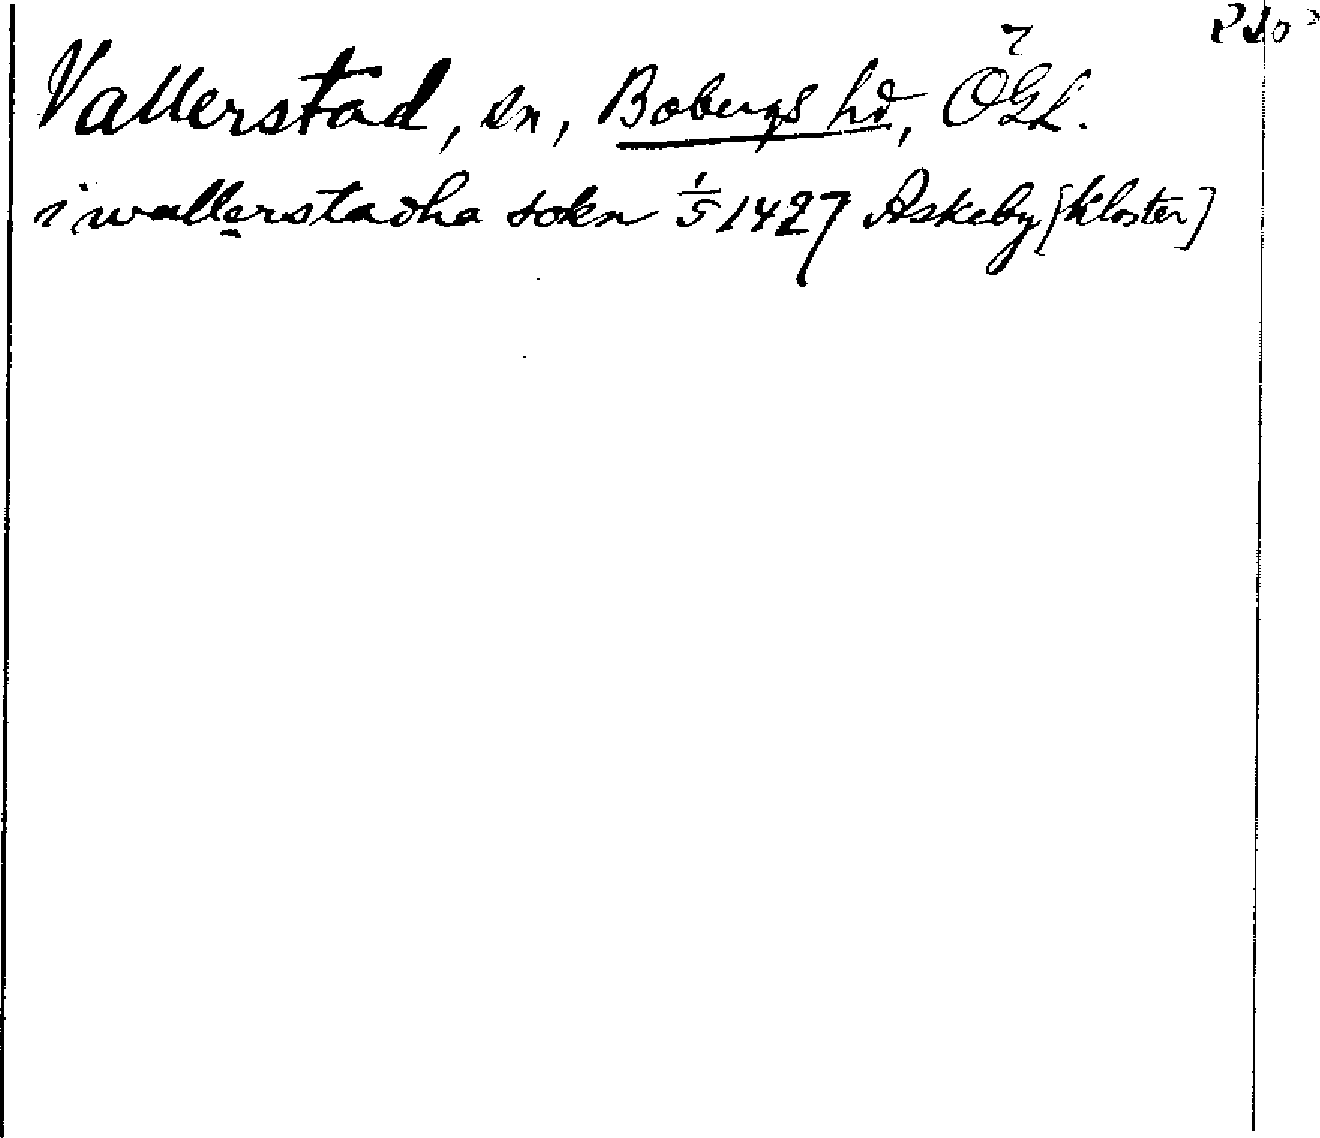 Vallerstad, sn, Bobergs hd, ÖGL.
i wallerstadha sokn 1/5 1427 Askeby [kloster]